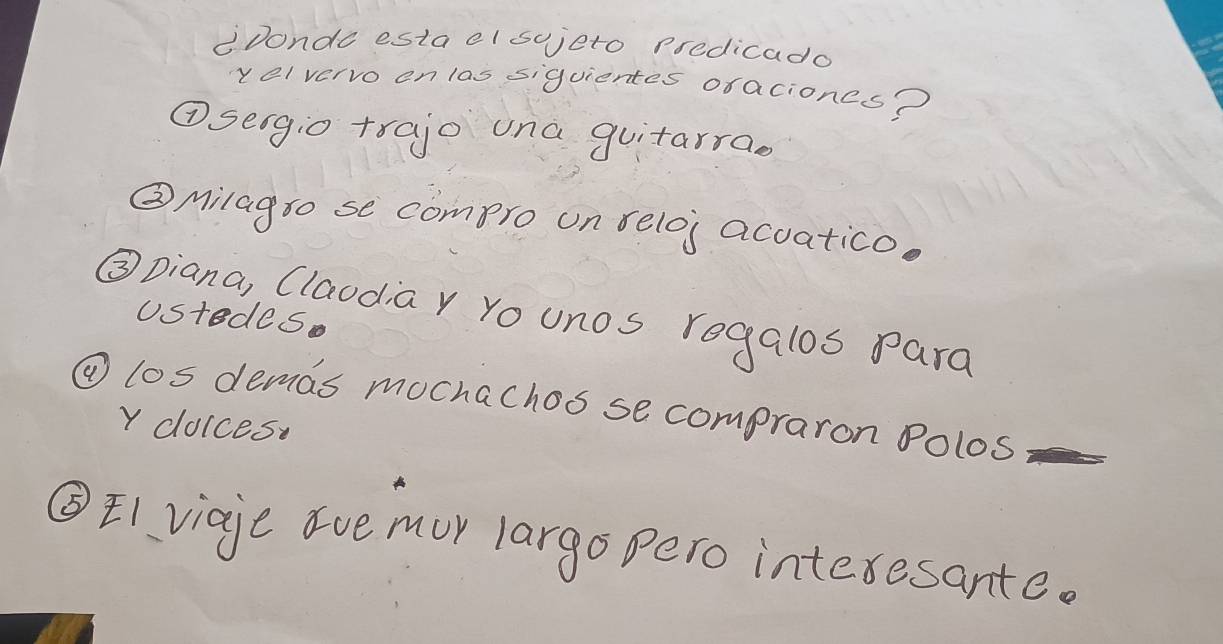 ¿Donde esta el sujeto Predicado
y el vervo en las siguientes oraciones?
① sergio trajo una guitarra.
② Milagro se compro un reloj acuatico.
③ Diana, Claudia y Yo unos regalos para
ustedes.
④ los demás muchachos se compraron Polos
Y dulces.
⑤ El viaje fue muy largo Pero interesante.